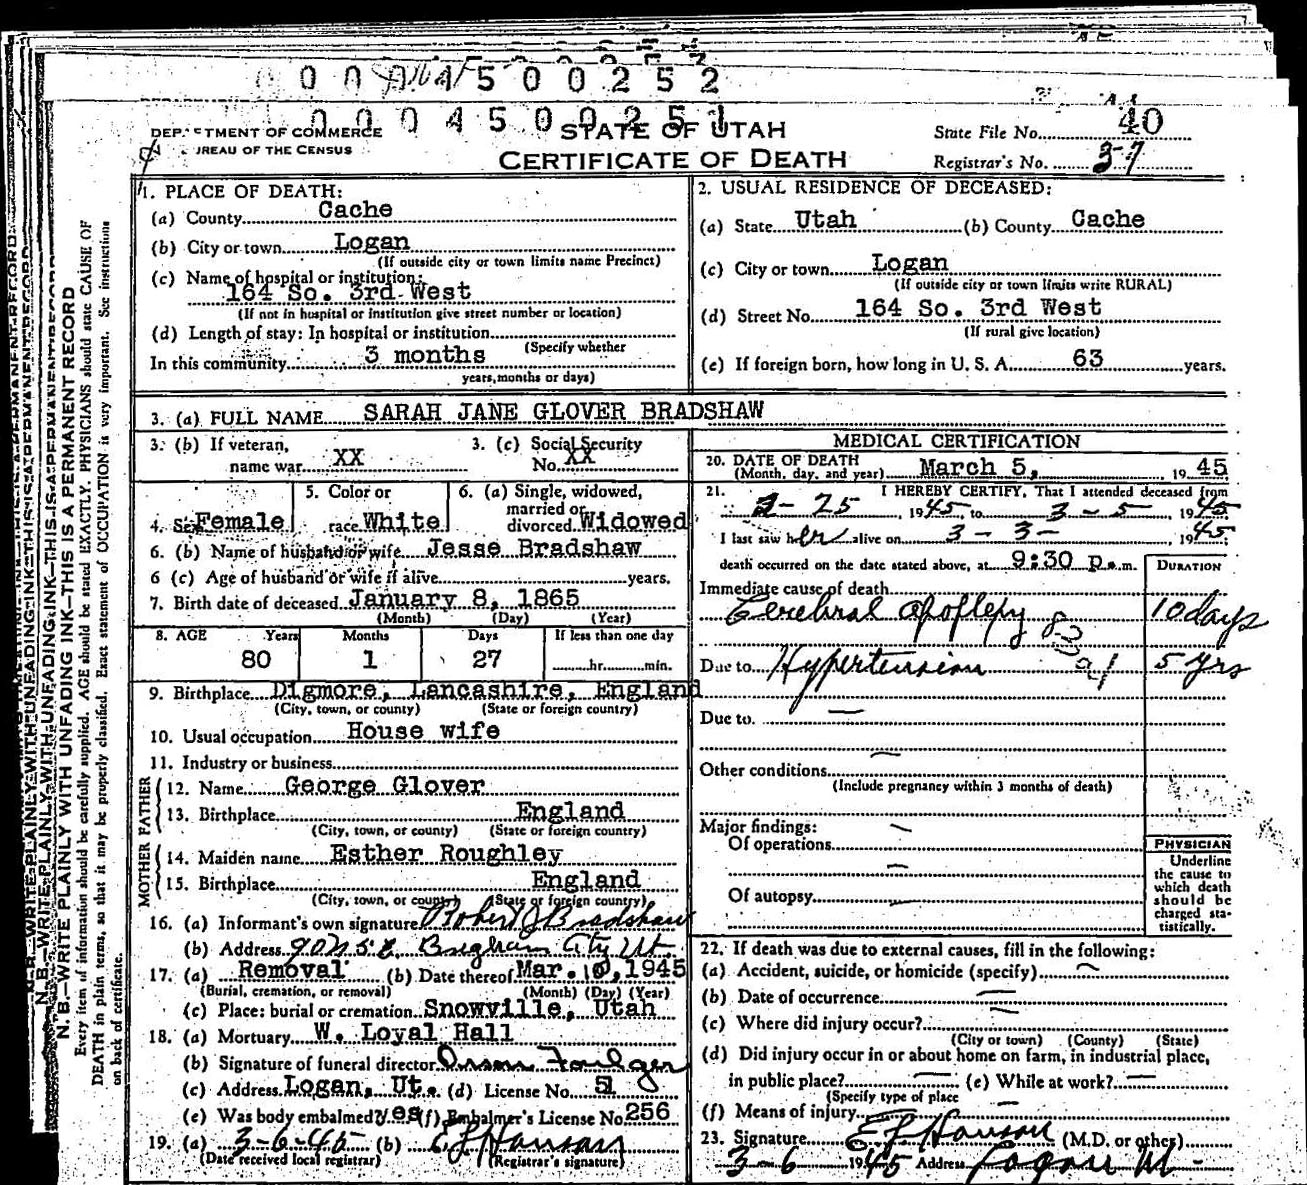 0 0 0 4 5 0 0 2 5 2
0 0 0 4 5 0 0 2 5 1
DEPARTMENT OF COMMERCE
BUREAU OF THE CENSUS
STATE OF UTAH
CERTIFICATE OF DEATH
State File No. 40
Registrar's No. 37
N. B.—WRITE PLAINLY WITH UNFADING INK—THIS IS A PERMANENT RECORD
Every item of information should be carefully supplied. AGE should be stated EXACTLY. PHYSICIANS should state CAUSE OF
DEATH in plain terms, so that it may be properly classified. Exact statement of OCCUPATION is very important. See instructions
on back of certificate.
1. PLACE OF DEATH:
(a) County Cache
(b) City or town Logan
(If outside city or town limits name Precinct)
(c) Name of hospital or institution:
164 So. 3rd West
(If not in hospital or institution give street number or location)
(d) Length of stay: In hospital or institution
(Specify whether
In this community 3 months
years, months or days)
2. USUAL RESIDENCE OF DECEASED:
(a) State Utah (b) County Cache
(c) City or town Logan
(If outside city or town limits write RURAL)
(d) Street No. 164 So. 3rd West
(If rural give location)
(e) If foreign born, how long in U. S. A. 63 years.
3. (a) FULL NAME SARAH JANE GLOVER BRADSHAW
3. (b) If veteran, name war XX
3. (c) Social Security No. XX
4. Sex Female
5. Color or race White
6. (a) Single, widowed, married or divorced Widowed
6. (b) Name of husband or wife Jesse Bradshaw
6 (c) Age of husband or wife if alive years.
7. Birth date of deceased January 8, 1865
(Month) (Day) (Year)
8. AGE Years Months Days If less than one day
80 1 27 hr. min.
9. Birthplace Digmore, Lancashire, England
(City, town, or county) (State or foreign country)
10. Usual occupation House wife
11. Industry or business
FATHER
12. Name George Glover
13. Birthplace England
(City, town, or county) (State or foreign country)
MOTHER
14. Maiden name Esther Roughley
15. Birthplace England
(City, town, or county) (State or foreign country)
16. (a) Informant's own signature Robert J Bradshaw
(b) Address 90 N 5 E Brigham City Ut.
17. (a) Removal (b) Date thereof Mar. 10, 1945
(Burial, cremation, or removal) (Month) (Day) (Year)
(c) Place: burial or cremation Snowville, Utah
18. (a) Mortuary W. Loyal Hall
(b) Signature of funeral director Orson Foulger
(c) Address Logan, Ut. (d) License No. 51
(e) Was body embalmed? Yes (f) Embalmer's License No. 256
19. (a) 3-6-45 (b) E L Hanson
(Date received local registrar) (Registrar's signature)
MEDICAL CERTIFICATION
20. DATE OF DEATH
(Month, day, and year) March 5, 1945
21. I HEREBY CERTIFY, That I attended deceased from
2-25, 1945 to 3-5, 1945
I last saw her alive on 3-3-, 1945
death occurred on the date stated above, at 9:30 p.m. DURATION
Immediate cause of death
Cerebral apoplexy 10 days
83
a1
Due to Hypertension 5 yrs
Due to. —
Other conditions —
(Include pregnancy within 3 months of death)
Major findings:
Of operations —
Of autopsy —
PHYSICIAN
Underline
the cause to
which death
should be
charged sta-
tistically.
22. If death was due to external causes, fill in the following:
(a) Accident, suicide, or homicide (specify) —
(b) Date of occurrence —
(c) Where did injury occur? —
(City or town) (County) (State)
(d) Did injury occur in or about home on farm, in industrial place,
in public place? — (e) While at work? —
(Specify type of place
(f) Means of injury —
23. Signature E L Hanson (M.D. or other)
3-6 1945 Address Logan Ut -